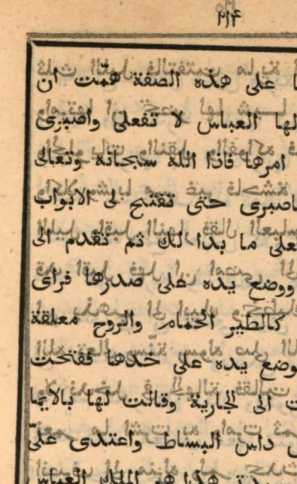 ٢١٤
على هذه الصفة همّت ان
لها العباس لا تفعلى واصبرى
امرها فاذا الله سبحانه وتعالى
فاصبرى حتى تفتح لى الابواب
ما بدا لك ثم تقدم الى
ووضع يده على صدرها فراى
كالطير الحمام والروح معلقة
ووضع يده على خدها ففتحت
الى الجارية وقالت لها بالايها
داس البساط واعتدى على
هذا هو الملك العباس